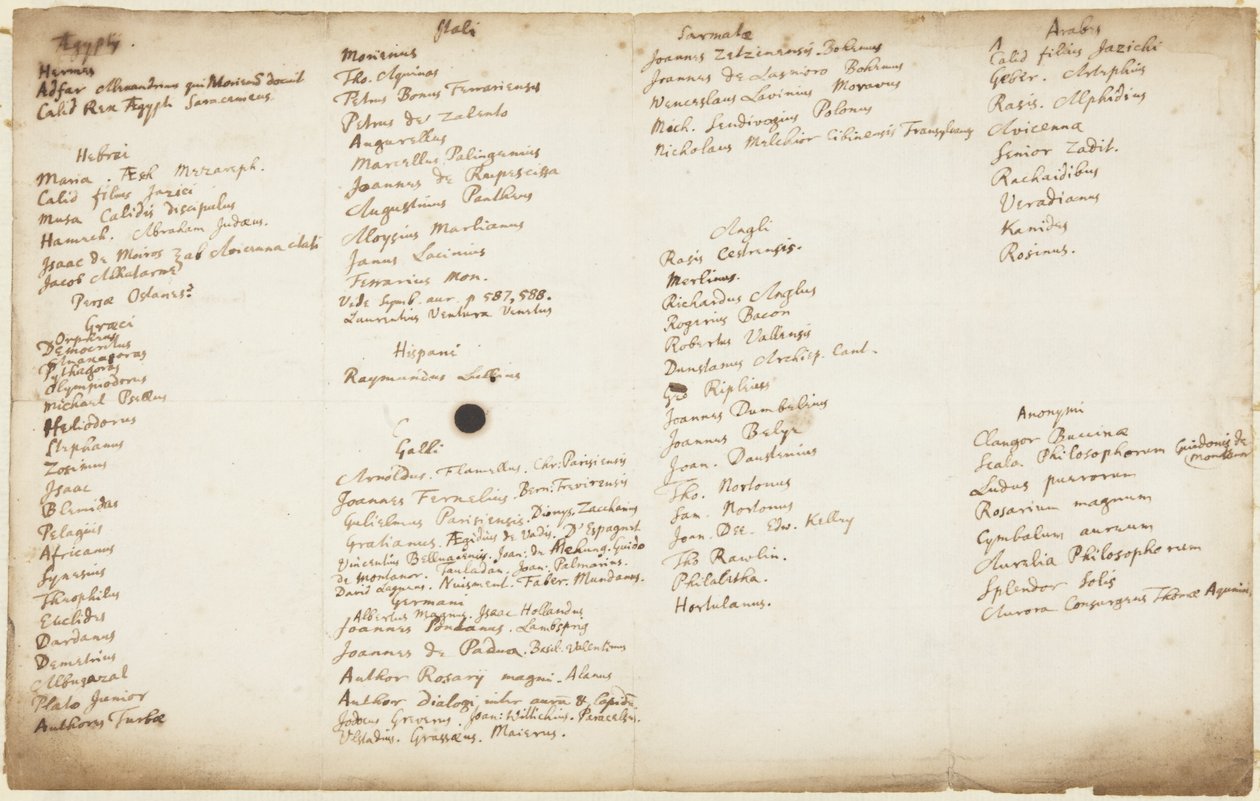 Ægyptii.
Hermes
Adfar Alexandrinus qui Morienū docuit
Calid Rex Ægypti Saracenicus.
Hebræi
Maria. Æsh Mezareph.
Calid filius Jazici
Musa Calidis discipulus
Hamech. Abraham Judæus.
Isaac de Moiros Zab Avicenna citati
Jacob Alkatarmi
Persæ Ostanes?
Græci
Orpheus
Democritus
Anaxagoras
Pythagoras
Olympiodorus
Michael Psellus
Heliodorus
Stephanus
Zosimus
Isaac
Blemidas
Pelagius
Africanus
Synesius
Theophilus
Euclides
Dardanus
Demetrius
Albugazal
Plato Junior
Authores Turbæ
Itali
Morienus
Tho. Aquinas
Petrus Bonus Ferrariensis
Petrus de Zalento
Augurellus
Marcellus Palingenius
Joannes de Rupescissa
Augustinus Pantheus
Aloysius Marlianus
Janus Lacinius
Ferrarius Mon.
Vide Symb. aur. p 587, 588.
Laurentius Ventura Venetus
Hispani
Raymundus Lullius
Galli
Arnoldus. Flamellus. Chr: Parisiensis
Joannes Fernelius. Bern: Trevirensis
Gulielmus Parisiensis. Dionys. Zaccharius
Gratianus. Ægidius de Vadis. D'Espagnet
Vincentius Belluacensis. Joan: de Mehung. Guido
de Montanor. Tauladan. Joan. Palmarius.
David Lagneus. Nuisment. Faber. Mundanus.
Germani
Albertus Magnus. Isaac Hollandus
Joannes Pontanus. Lambsprig
Joannes de Padua. Basil. Valentinus
Author Rosarij magni. Alanus
Author Dialogi inter aurū & lapidē
Jodocus Greverus. Joan: Willichius. Paracelsus.
Ulstadius. Grassæus. Maierus.
Sarmatæ
Joannes Tetzenensis. Bohemus
Joannes de Lasnioro Bohemus
Wenceslaus Lavinius Moravus
Mich. Sendivogius Polonus
Nicholaus Melchior Cibinensis Transylvanus
Angli
Rasis Cestrensis.
Merlinus.
Richardus Anglus
Rogerius Bacon
Robertus Vallensis
Dunstanus Archiep. Cant.
Geo Ripleus
Joannes Dumbelinus
Joannes Belye
Joan. Daustenius
Tho. Nortonus
Sam. Nortonus
Joan. Dee. Edw. Kelley
Tho Rawlin.
Philaletha.
Hortulanus.
Arabes
Calid filius Jazichi
Geber. Artephius
Rasis. Alphidius
Avicenna
Senior Zadit.
Rachaidibus
Veradianus
Kanides
Rosinus.
Anonymi
Clangor Buccinæ
Scala Philosophorum Guidonis de Montanor
Ludus puerorum
Rosarium magnum
Cymbalum aureum
Aurelia Philosophorum
Splendor Solis
Aurora Consurgens Thomæ Aquini.